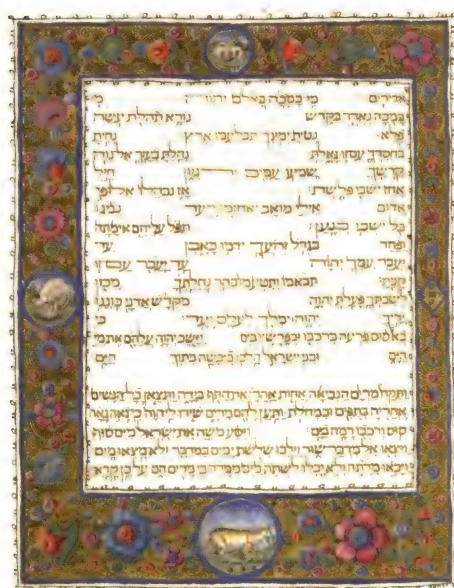 אדירים מי כמכה באלם יהוה מי
כמכה נאדר בקדש נורא תהלת עשה
פלא נטית ימינך תבלעמו ארץ נחית
בחסדך עם זו גאלת נהלת בעזך אל נוה
קדשך שמעו עמים ירגזון חיל
אחז ישבי פלשת אז נבהלו אלופי
אדום אילי מואב יאחזמו רעד נמגו
כל ישבי כנען תפל עליהם אימתה
ופחד בגדל זרועך ידמו כאבן עד
יעבר עמך יהוה עד יעבר עם זו
קנית תבאמו ותטעמו בהר נחלתך מכון
לשבתך פעלת יהוה מקדש אדני כוננו
ידיך יהוה ימלך לעלם ועד כי
בא סוס פרעה ברכבו ובפרשיו בים וישב יהוה עלהם את מי
הים ובני ישראל הלכו ביבשה בתוך הים
ותקח מרים הנביאה אחות אהרן את התף בידה ותצאן כל הנשים
אחריה בתפים ובמחלת ותען להם מרים שירו ליהוה כי גאה גאה
סוס ורכבו רמה בים ויסע משה את ישראל מים סוף
ויצאו אל מדבר שור וילכו שלשת ימים במדבר ולא מצאו מים
ויבאו מרתה ולא יכלו לשתת מים ממרה כי מרים הם על כן קרא